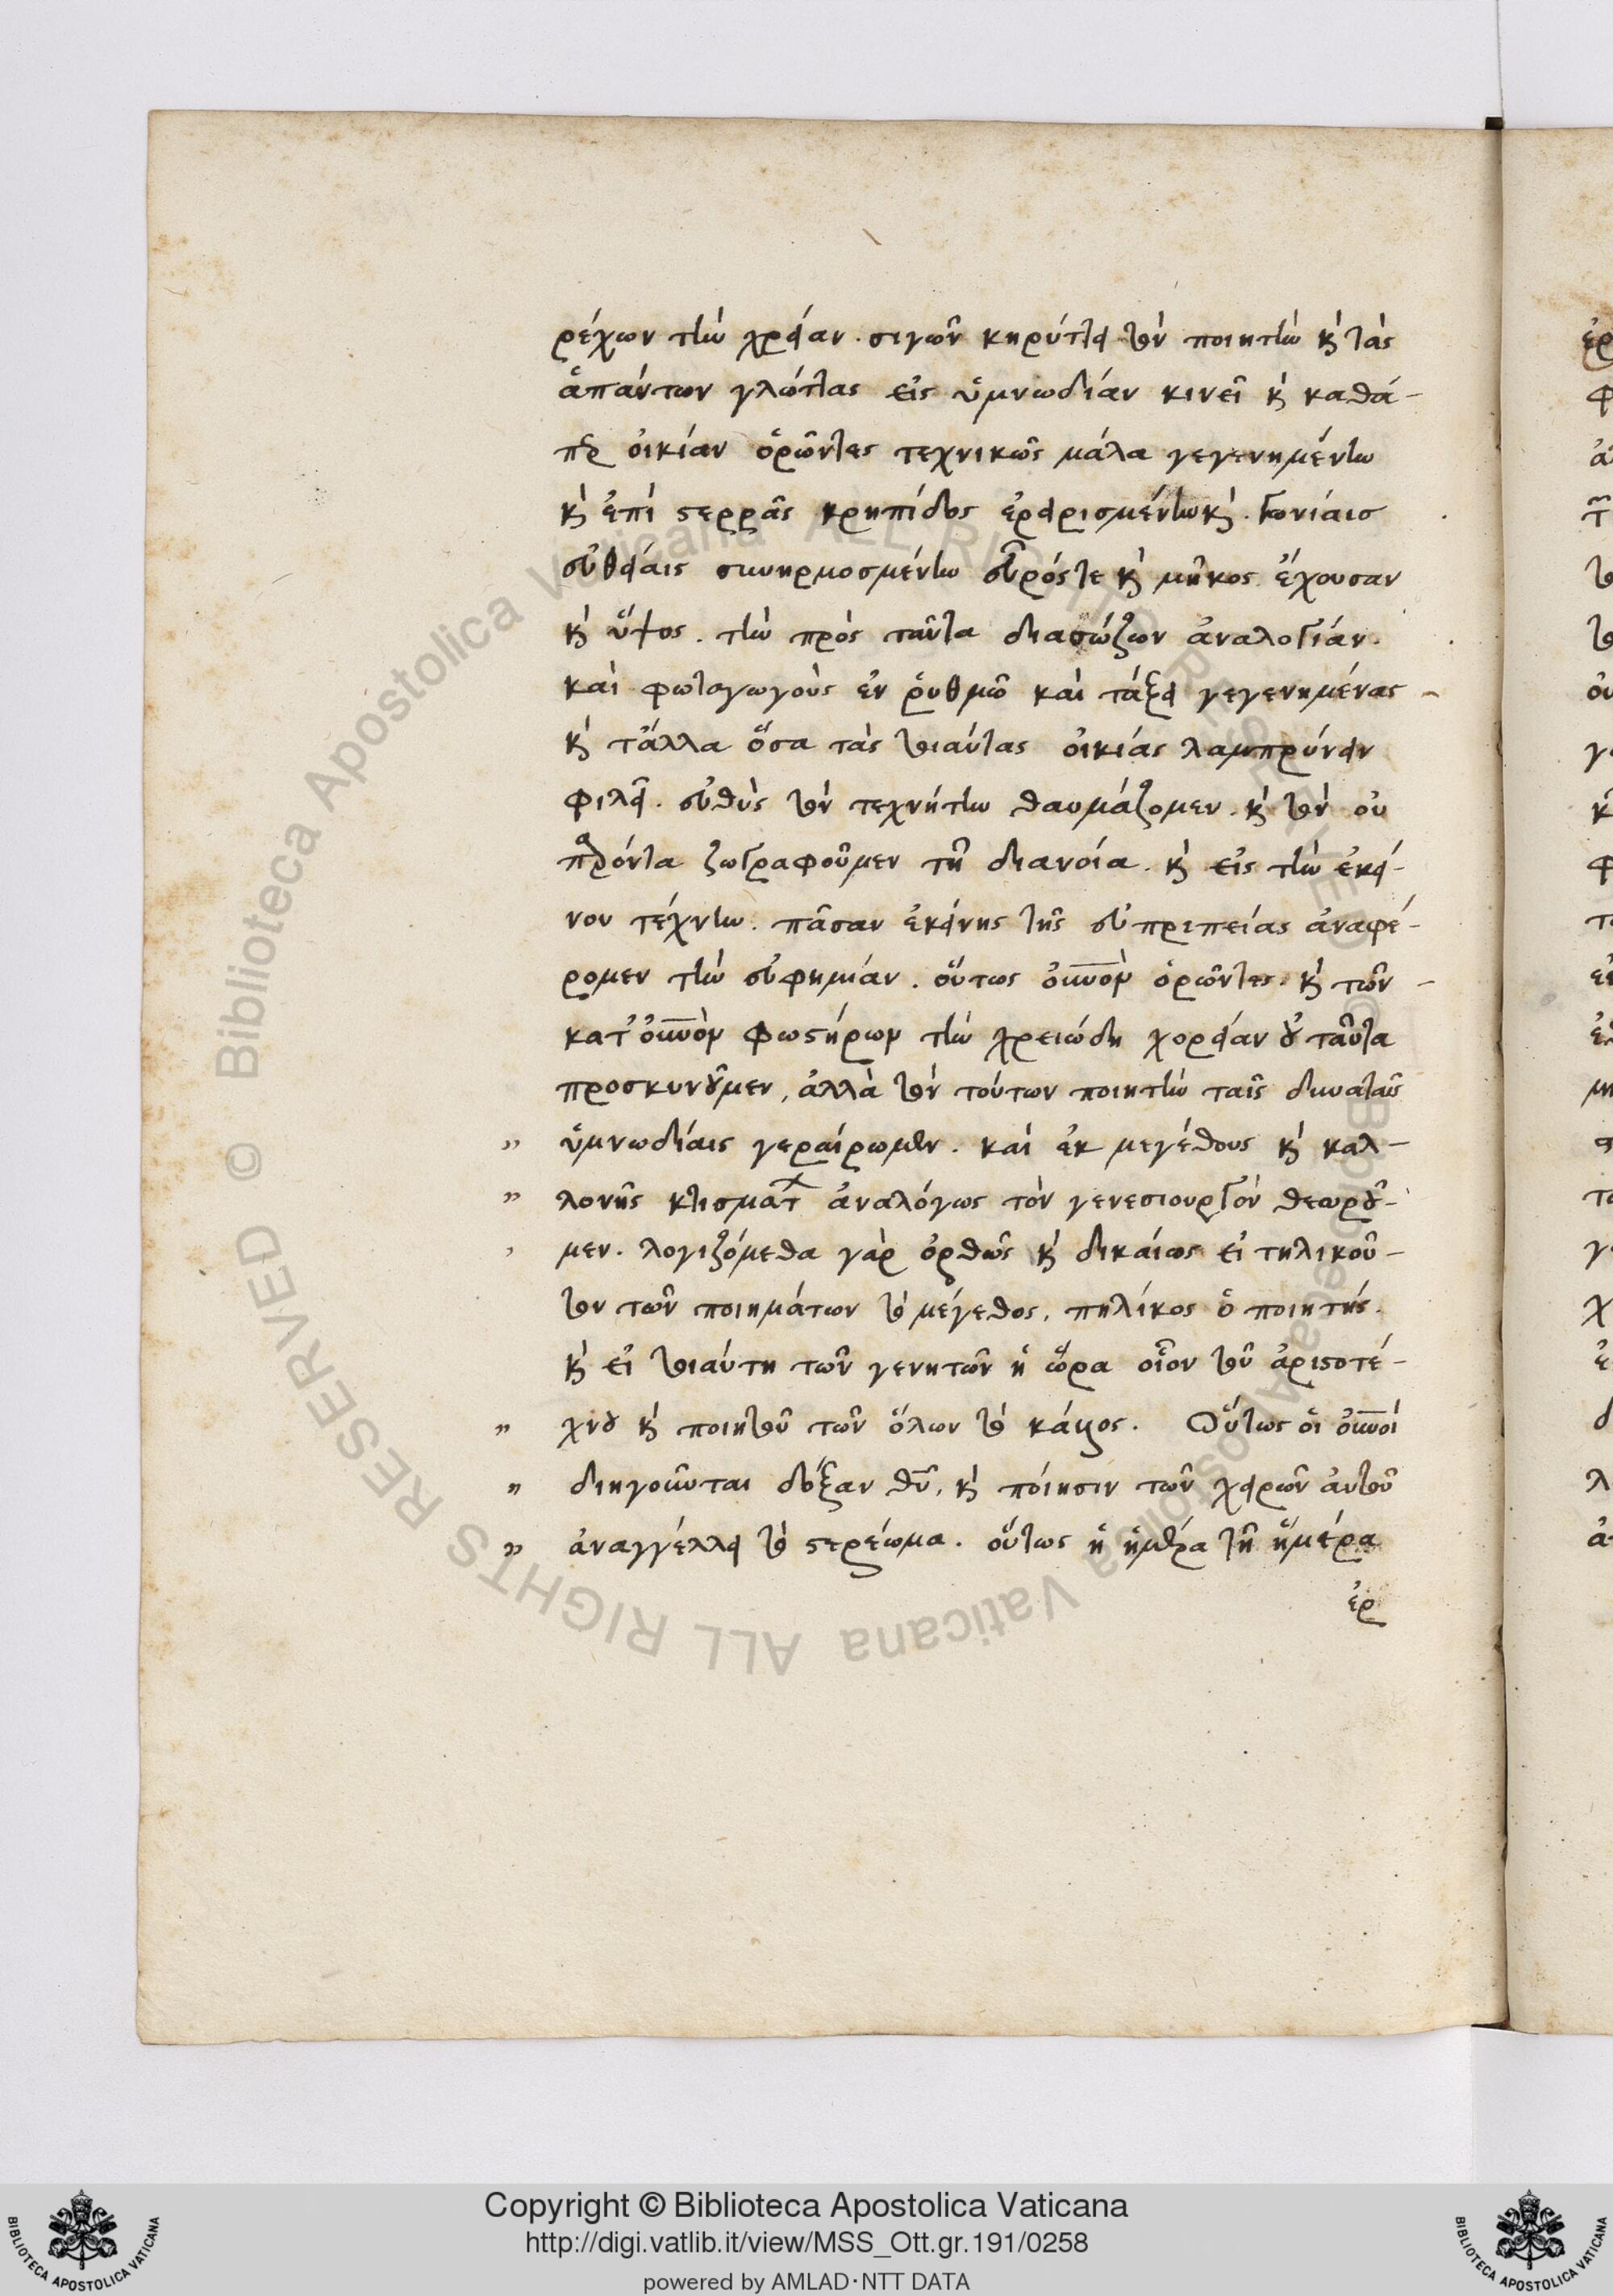 ρέχων τὴν χρείαν. σιγῶν κηρύττει τὸν ποιητὴν καὶ τὰς
ἁπάντων γλώττας εἰς ὑμνωδίαν κινεῖ καὶ καθά-
περ οἰκίαν ὁρῶντες τεχνικῶς μάλα γεγενημένην
καὶ ἐπὶ στερρᾶς κρηπίδος ἐρηρισμένην καὶ. γωνίαις
εὐθείαις συνηρμοσμένην εὖρός τε καὶ μῆκος ἔχουσαν
καὶ ὕψος. τὴν πρὸς ταῦτα διασώζων ἀναλογίαν.
καὶ φωταγωγοὺς ἐν ῥυθμῶ καὶ τάξει γεγενημένας
καὶ τἄλλα ὅσα τὰς τοιαύτας οἰκίας λαμπρύνειν
φιλεῖ. εὐθὺς τὸν τεχνήτην θαυμάζομεν. καὶ τὸν οὐ
παρόντα ζωγραφοῦμεν τῆ διανοία. καὶ εἰς τὴν ἐκεί-
νου τέχνην. πᾶσαν ἐκείνης τῆς εὐπρεπείας ἀναφέ-
ρομεν τὴν εὐφημίαν. οὕτως οὐνὸν ὁρῶντες. καὶ τῶν
κατ' οὐνὸν φωστήρων τὴν χρειώδη χορείαν οὐ ταῦτα
προσκυνοῦμεν, ἀλλὰ τὸν τούτων ποιητὴν ταῖς δυναταῖς
" ὑμνωδίαις γεραίρωμεν. καὶ ἐκ μεγέθους καὶ καλ-
" λονῆς κτισμάτων ἀναλόγως τὸν γενεσιουργὸν θεωροῦ-
, μεν. λογιζόμεθα γὰρ ὀρθῶς καὶ δικαίως εἰ τηλικοῦ-
τον τῶν ποιημάτων τὸ μέγεθος, πηλίκος ὁ ποιητής.
καὶ εἰ τοιαύτη τῶν γενητῶν ἡ ὥρα οἷον τοῦ ἀριστοτέ-
" χνου καὶ ποιητοῦ τῶν ὅλων τὸ κάλλος. Οὕτως οἱ οὐνοὶ
" διηγοῦνται δόξαν θῦ, καὶ ποίησιν τῶν χειρῶν αὐτοῦ
" ἀναγγέλλει τὸ στερέωμα. οὕτως ἡ ἡμέρα τῆ ἡμέρα
ἐρ
Copyright © Biblioteca Apostolica Vaticana
http://digi.vatlib.it/view/MSS_Ott.gr.191/0258
powered by AMLAD·NTT DATA